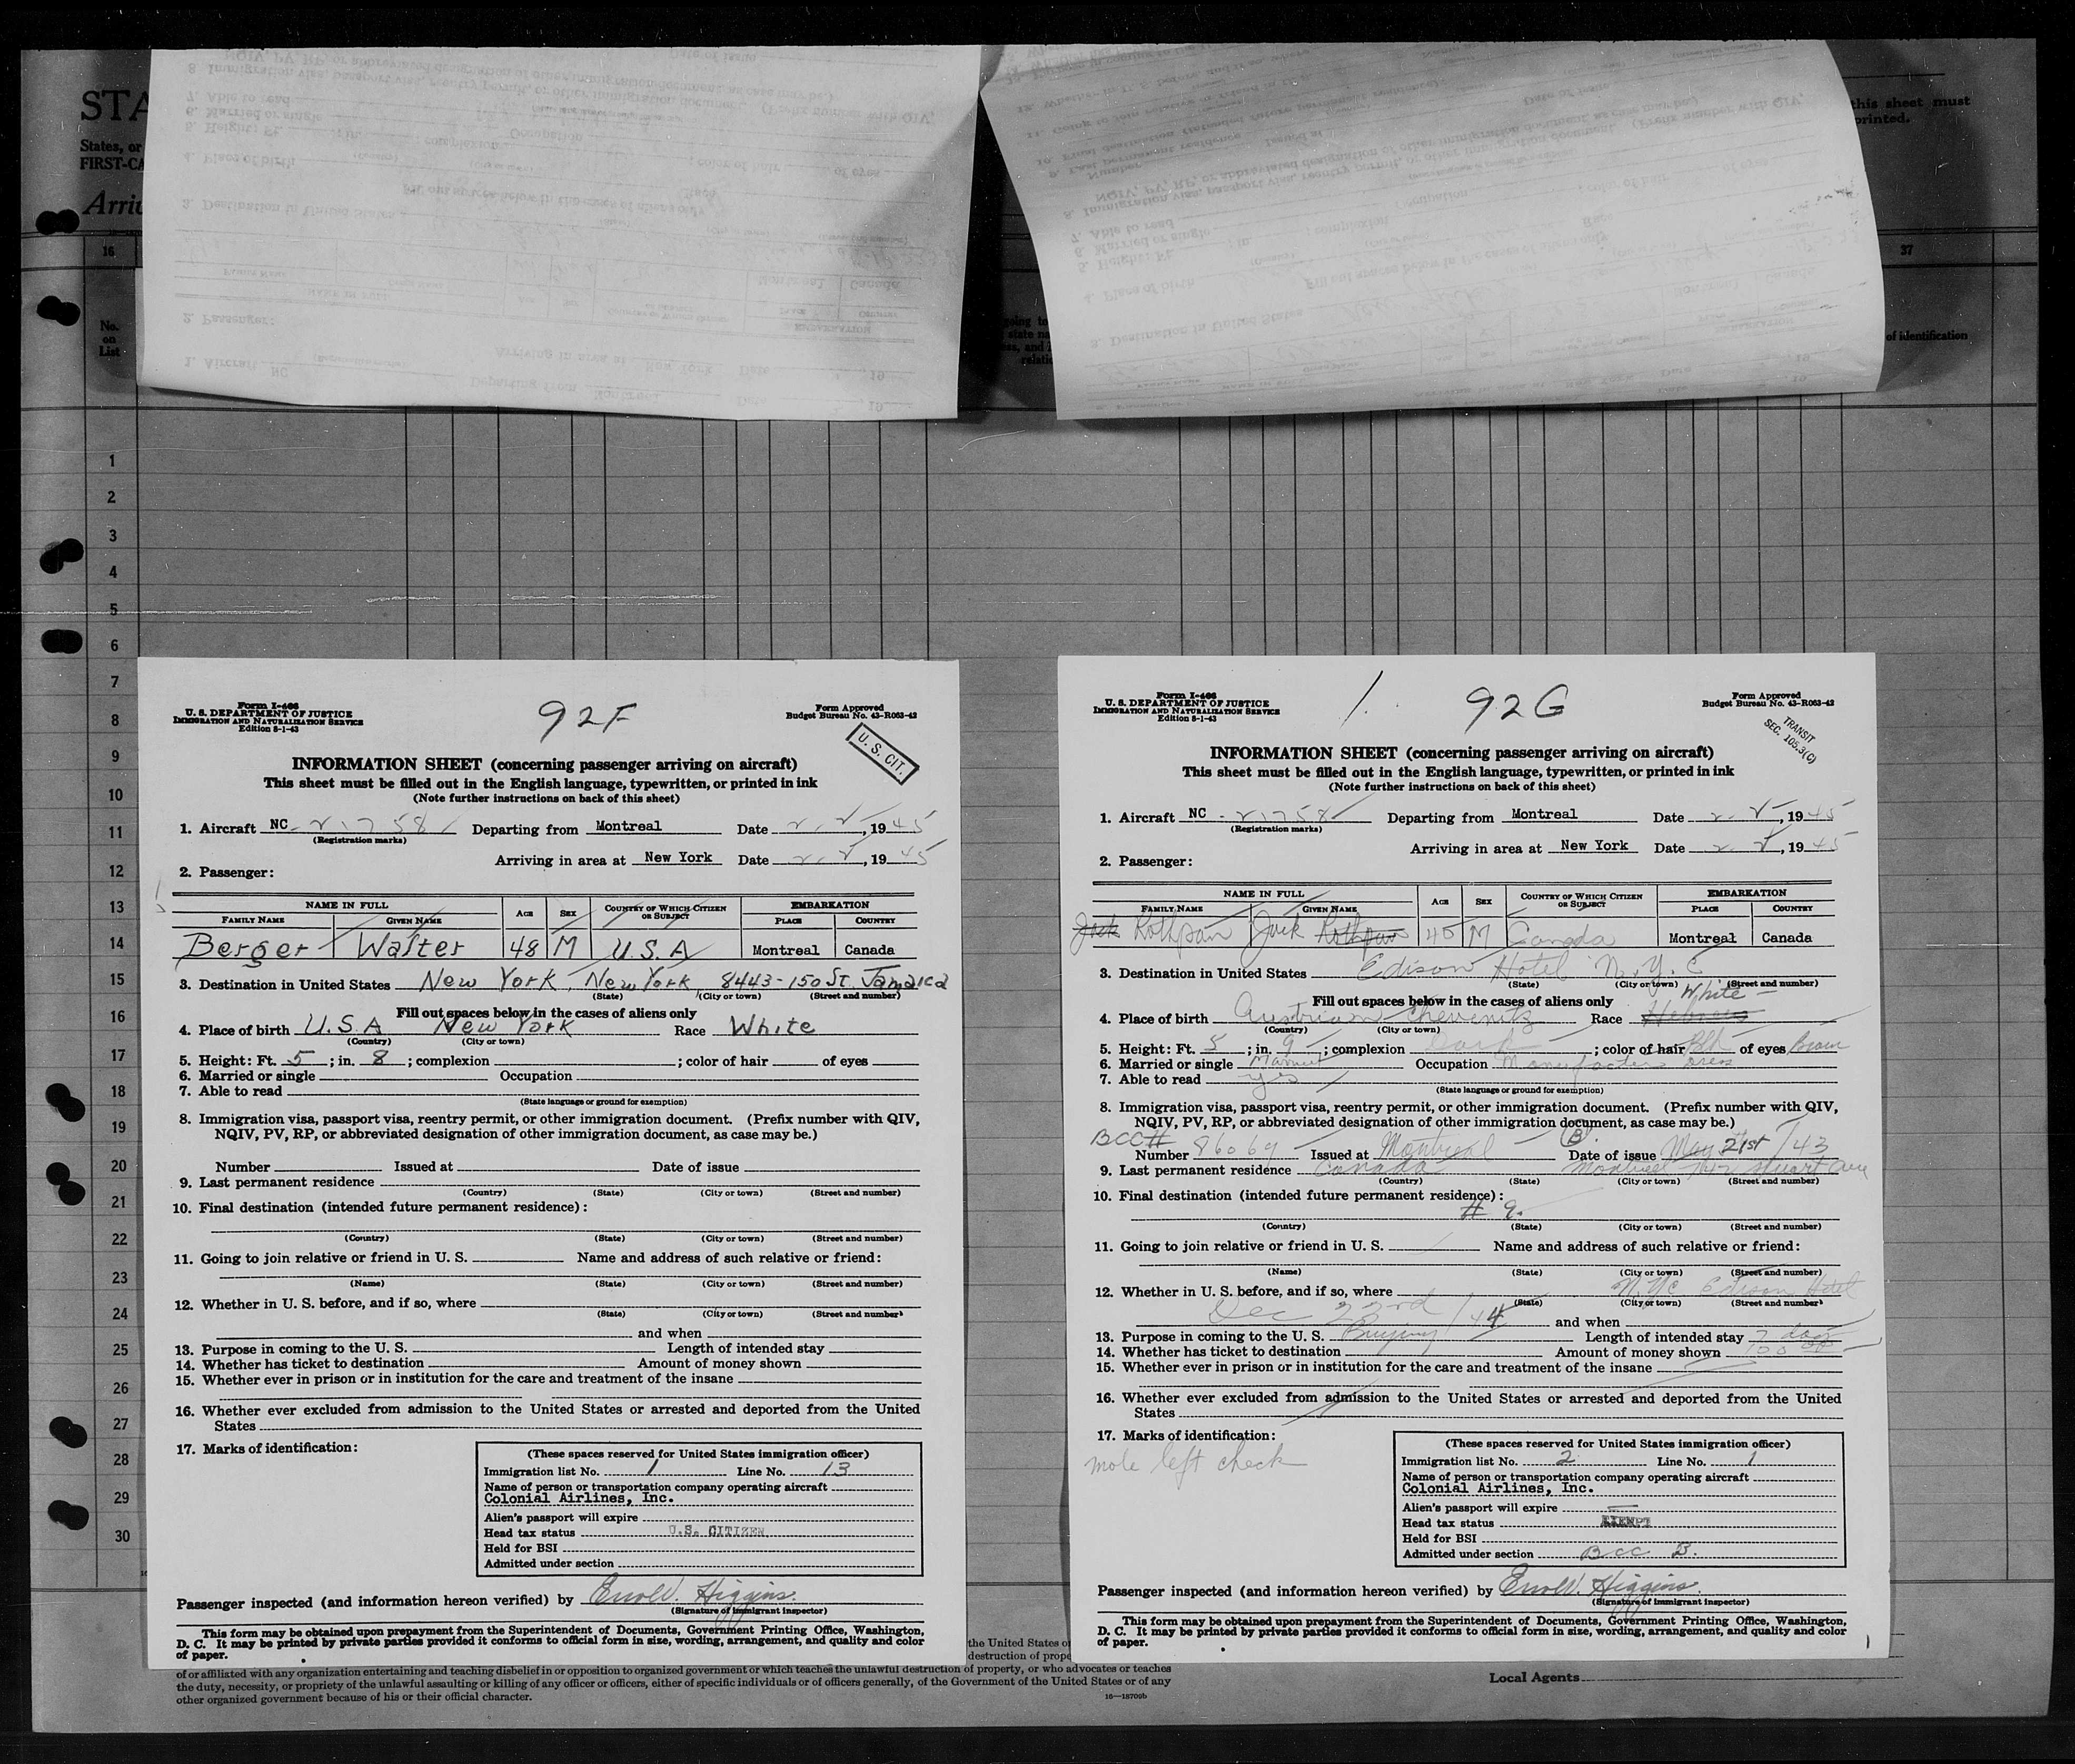 STA
States, or
FIRST-CA
this sheet must
printed.
Arri
16
37
No.
on
List
going to
state na
relati
of identification
1
2
3
4
5
6
7
8
9
10
11
12
13
14
15
16
17
18
19
20
21
22
23
24
25
26
27
28
29
30
Form I-466
U. S. DEPARTMENT OF JUSTICE
IMMIGRATION AND NATURALIZATION SERVICE
Edition 8-1-43
92F
Form Approved
Budget Bureau No. 43-R063-42
U. S. CIT.
INFORMATION SHEET (concerning passenger arriving on aircraft)
This sheet must be filled out in the English language, typewritten, or printed in ink
(Note further instructions on back of this sheet)
1. Aircraft NC - 21758 Departing from Montreal Date 2-5, 1945
(Registration marks)
Arriving in area at New York Date 2-5, 1945
2. Passenger:
NAME IN FULL AGE SEX COUNTRY OF WHICH CITIZEN OR SUBJECT EMBARKATION
FAMILY NAME GIVEN NAME PLACE COUNTRY
Berger Walter 48 M U.S.A Montreal Canada
3. Destination in United States New York, New York 8443-150 St. Jamaica
(State) (City or town) (Street and number)
Fill out spaces below in the cases of aliens only
4. Place of birth U.S.A New York Race White
(Country) (City or town)
5. Height: Ft. 5; in. 8; complexion ; color of hair of eyes
6. Married or single Occupation
7. Able to read
(State language or ground for exemption)
8. Immigration visa, passport visa, reentry permit, or other immigration document. (Prefix number with QIV,
NQIV, PV, RP, or abbreviated designation of other immigration document, as case may be.)
Number Issued at Date of issue
9. Last permanent residence
(Country) (State) (City or town) (Street and number)
10. Final destination (intended future permanent residence):
(Country) (State) (City or town) (Street and number)
11. Going to join relative or friend in U. S. Name and address of such relative or friend:
(Name) (State) (City or town) (Street and number)
12. Whether in U. S. before, and if so, where
(State) (City or town) (Street and number)
and when
13. Purpose in coming to the U. S. Length of intended stay
14. Whether has ticket to destination Amount of money shown
15. Whether ever in prison or in institution for the care and treatment of the insane
16. Whether ever excluded from admission to the United States or arrested and deported from the United
States
17. Marks of identification:
(These spaces reserved for United States immigration officer)
Immigration list No. 1 Line No. 13
Name of person or transportation company operating aircraft
Colonial Airlines, Inc.
Alien's passport will expire
Head tax status U.S. CITIZEN
Held for BSI
Admitted under section
Passenger inspected (and information hereon verified) by Errol W. Higgins.
(Signature of immigrant inspector)
This form may be obtained upon prepayment from the Superintendent of Documents, Government Printing Office, Washington,
D. C. It may be printed by private parties provided it conforms to official form in size, wording, arrangement, and quality and color
of paper.
Form I-466
U. S. DEPARTMENT OF JUSTICE
IMMIGRATION AND NATURALIZATION SERVICE
Edition 8-1-43
1. 92G
Form Approved
Budget Bureau No. 43-R063-42
TRANSIT
SEC. 105.3(C)
INFORMATION SHEET (concerning passenger arriving on aircraft)
This sheet must be filled out in the English language, typewritten, or printed in ink
(Note further instructions on back of this sheet)
1. Aircraft NC - 21758 Departing from Montreal Date 2-5, 1945
(Registration marks)
Arriving in area at New York Date 2-5, 1945
2. Passenger:
NAME IN FULL AGE SEX COUNTRY OF WHICH CITIZEN OR SUBJECT EMBARKATION
FAMILY NAME GIVEN NAME PLACE COUNTRY
Jack Rothpan Jack Rothpan 45 M Canada Montreal Canada
3. Destination in United States Edison Hotel N.Y.C
(State) (City or town) (Street and number)
White
Fill out spaces below in the cases of aliens only
4. Place of birth Austrian Race Hebrew
(Country) (City or town)
5. Height: Ft. 5; in. 9; complexion Dark; color of hair Blk of eyes Brown
6. Married or single Married Occupation Manufacters dress
7. Able to read yes
(State language or ground for exemption)
8. Immigration visa, passport visa, reentry permit, or other immigration document. (Prefix number with QIV,
NQIV, PV, RP, or abbreviated designation of other immigration document, as case may be.)
BCC# B.
Number 86069 Issued at Montreal Date of issue May 21st/43
9. Last permanent residence Canada Montreal Stuart Ave
(Country) (State) (City or town) (Street and number)
10. Final destination (intended future permanent residence):
# 9.
(Country) (State) (City or town) (Street and number)
11. Going to join relative or friend in U. S. Name and address of such relative or friend:
(Name) (State) (City or town) (Street and number)
12. Whether in U. S. before, and if so, where N.Y.C. Edison Hotel
(State) (City or town) (Street and number)
Dec 23rd/44 and when
13. Purpose in coming to the U. S. Buying Length of intended stay 7 days
14. Whether has ticket to destination Amount of money shown 100.00
15. Whether ever in prison or in institution for the care and treatment of the insane
16. Whether ever excluded from admission to the United States or arrested and deported from the United
States
17. Marks of identification:
mole left check
(These spaces reserved for United States immigration officer)
Immigration list No. 2 Line No. 1
Name of person or transportation company operating aircraft
Colonial Airlines, Inc.
Alien's passport will expire
Head tax status EXEMPT
Held for BSI
Admitted under section BCC B.
Passenger inspected (and information hereon verified) by Errol W. Higgins.
(Signature of immigrant inspector)
This form may be obtained upon prepayment from the Superintendent of Documents, Government Printing Office, Washington,
D. C. It may be printed by private parties provided it conforms to official form in size, wording, arrangement, and quality and color
of paper.
the United States or
destruction of prope
of or affiliated with any organization entertaining and teaching disbelief in or opposition to organized government or which teaches the unlawful destruction of property, or who advocates or teaches
the duty, necessity, or propriety of the unlawful assaulting or killing of any officer or officers, either of specific individuals or of officers generally, of the Government of the United States or of any
other organized government because of his or their official character.
16—18709b
Local Agents